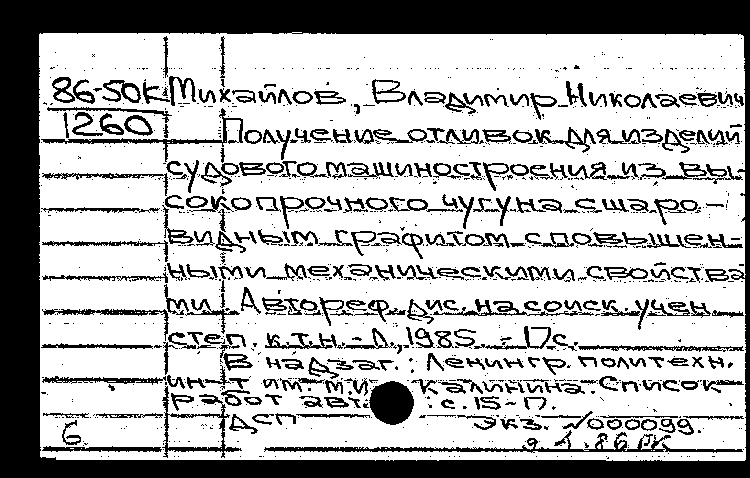 86-50К Михайлов, Владимир Николаевич
1260 Получение отливок для изделий
судового машиностроения из вы-
сокопрочного чугуна с шаро-
видным графитом с повышен-
ными механическими свойства
ми. Автореф. дис. на соиск. учен.
степ. к.т.н. - Л., 1985. - 17с.
В надзаг.: Ленингр. политехн.
ин-т им. М.И. Калинина. Список
работ авт.: с. 15-17.
ДСП Экз. № 000099.
6 86 РК